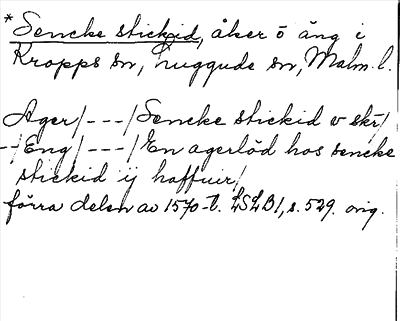 * Sencke stickid, åker o äng i
Kropps sn, Luggude sn, Malm. l.
Ager/---/Sencke stickid v skr/
--/Eng/---/En agerlöd hos sencke
stickid ij haffuir/
förra delen av 1570-t. LSLB1, s. 529. orig.